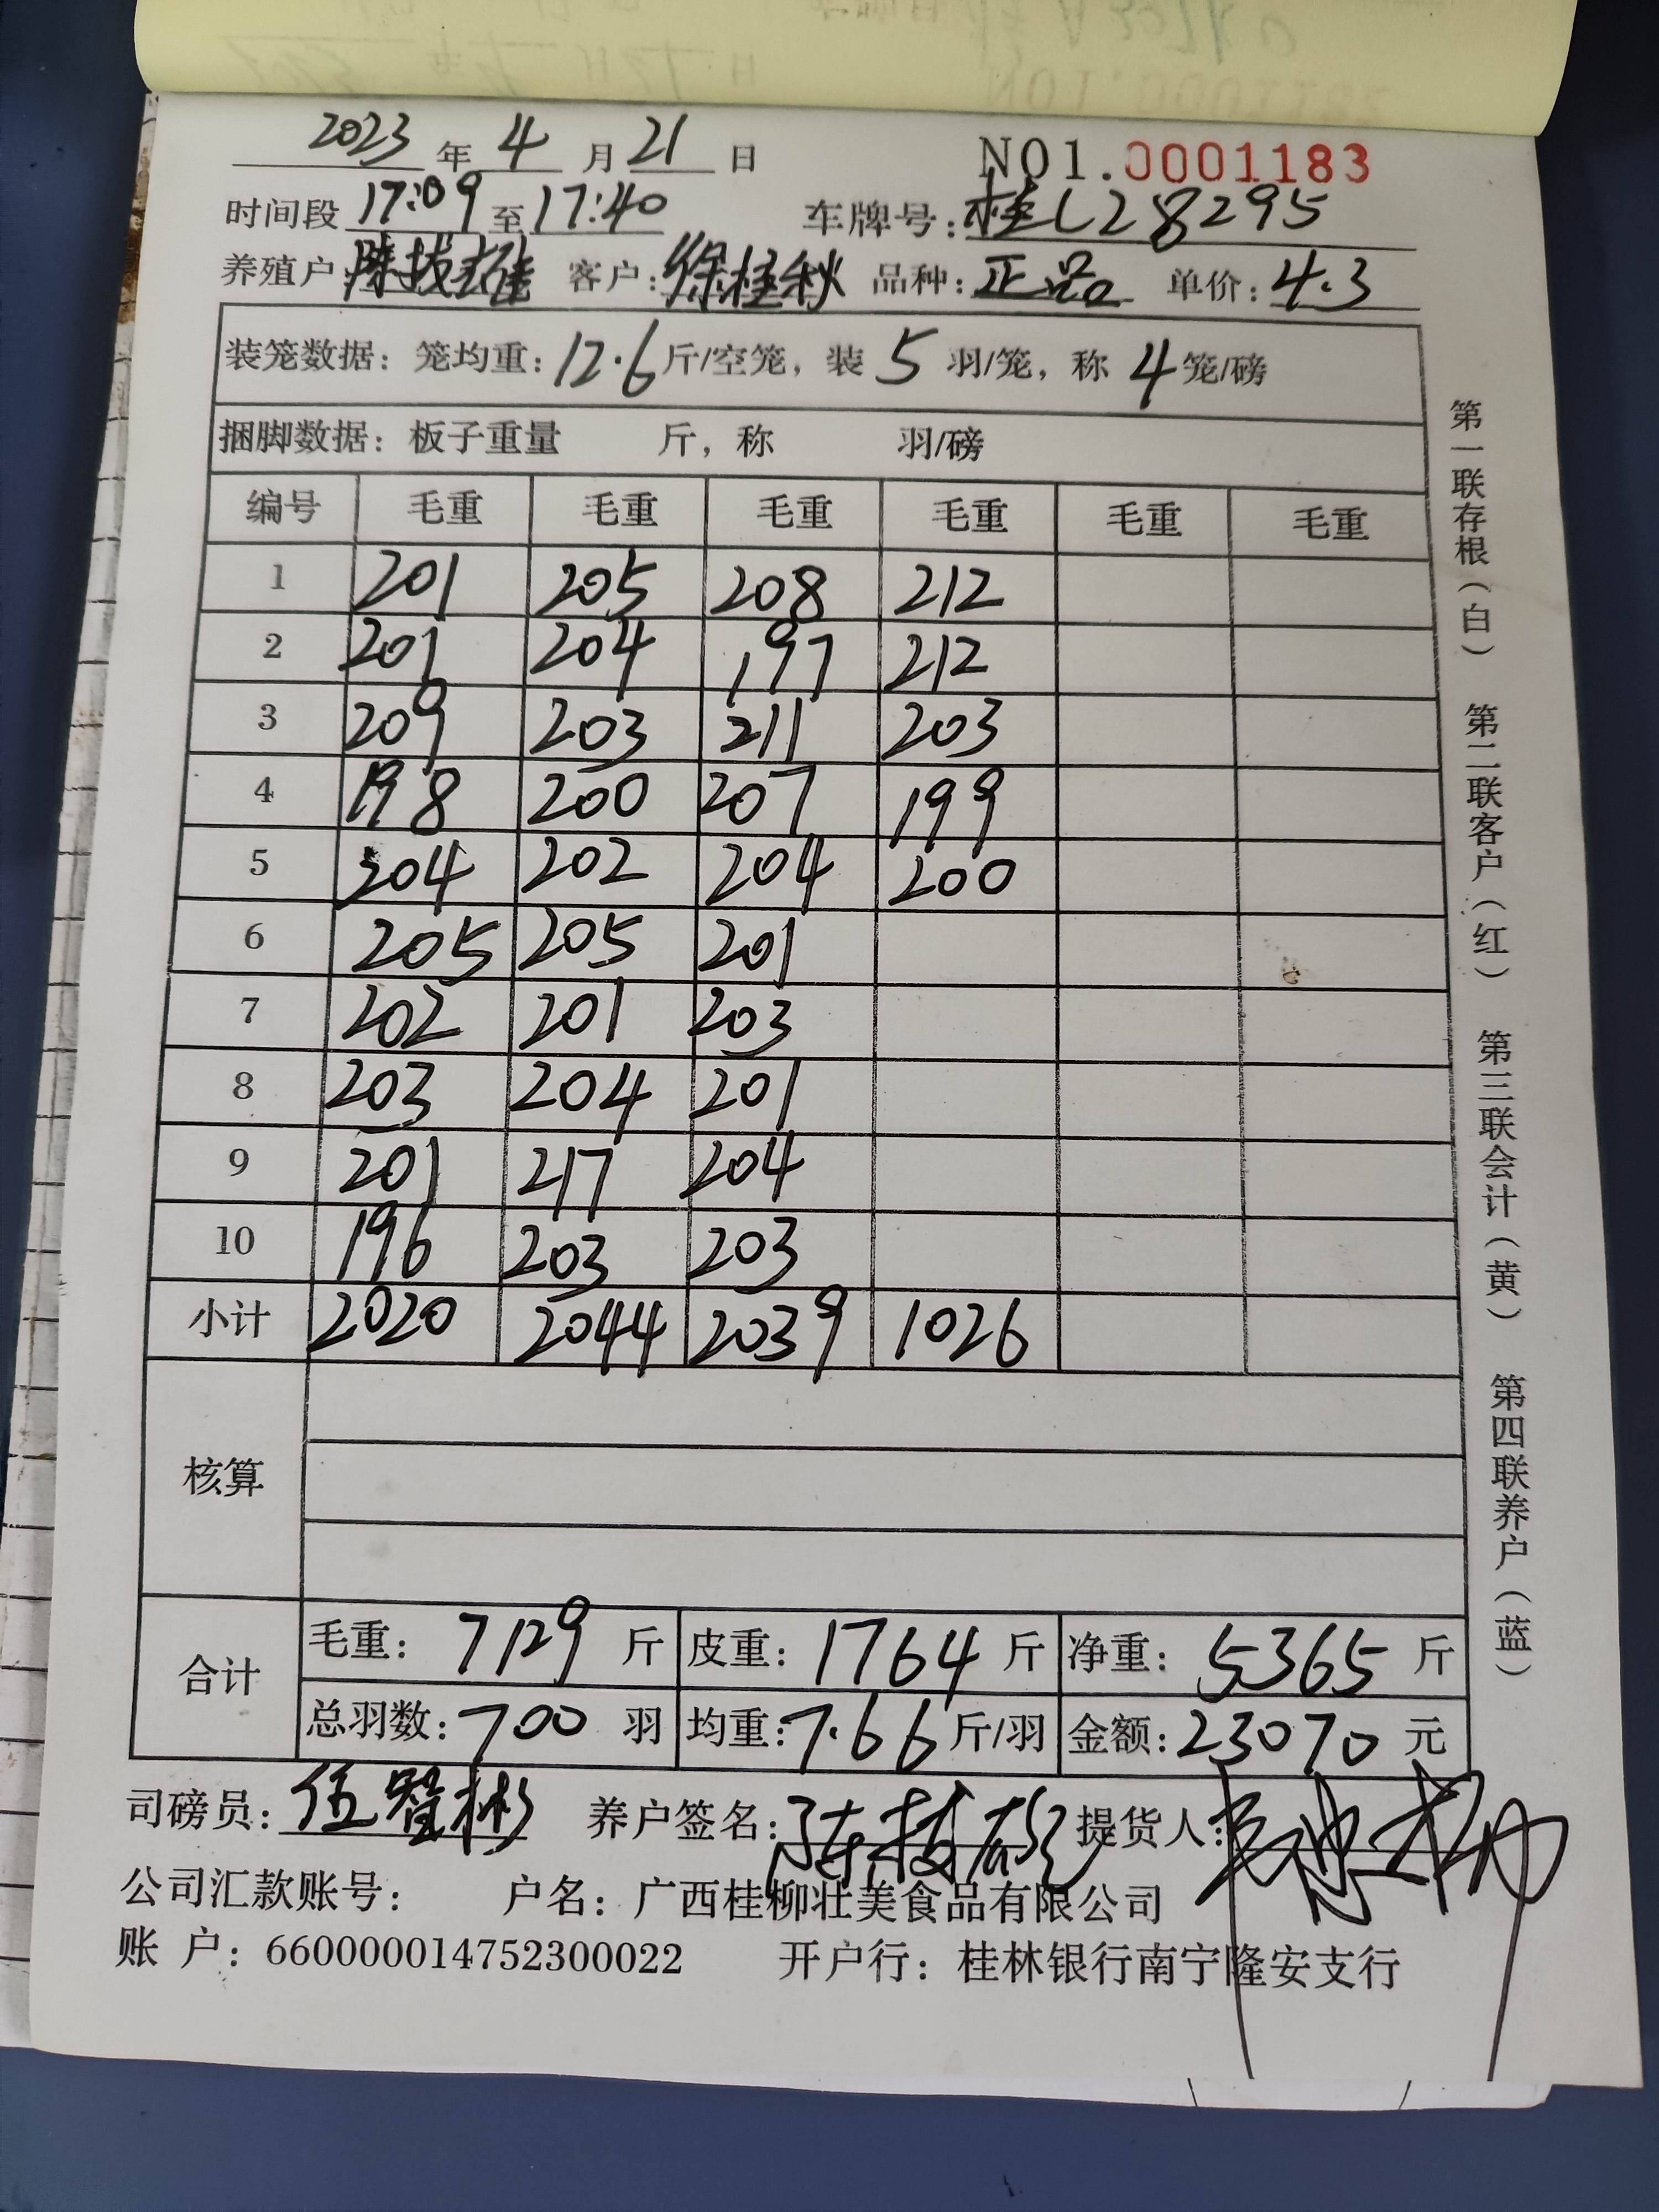 2023年4月21日 NO1.0001183
时间段17:09至17:40 车牌号:桂L28295
养殖户:陈拔雄 客户:徐桂秋 品种:正品 单价:4.3
装笼数据:笼均重:12.6斤/空笼,装5羽/笼,称4笼/磅
捆脚数据:板子重量 斤,称 羽/磅
编号 毛重 毛重 毛重 毛重 毛重 毛重
1 201 205 208 212
2 201 204 197 212
3 209 203 211 203
4 198 200 207 199
5 204 202 204 200
6 205 205 201
7 202 201 203
8 203 204 201
9 201 217 204
10 196 203 203
小计 2020 2044 2039 1026
核算
合计 毛重:7129斤 皮重:1764斤 净重:5365斤
总羽数:700羽 均重:7.66斤/羽 金额:23070元
司磅员:伍智彬 养户签名: 提货人:
公司汇款账号: 户名:广西桂柳壮美食品有限公司
账户:660000014752300022 开户行:桂林银行南宁隆安支行
第一联存根(白) 第二联客户(红) 第三联会计(黄) 第四联养户(蓝)